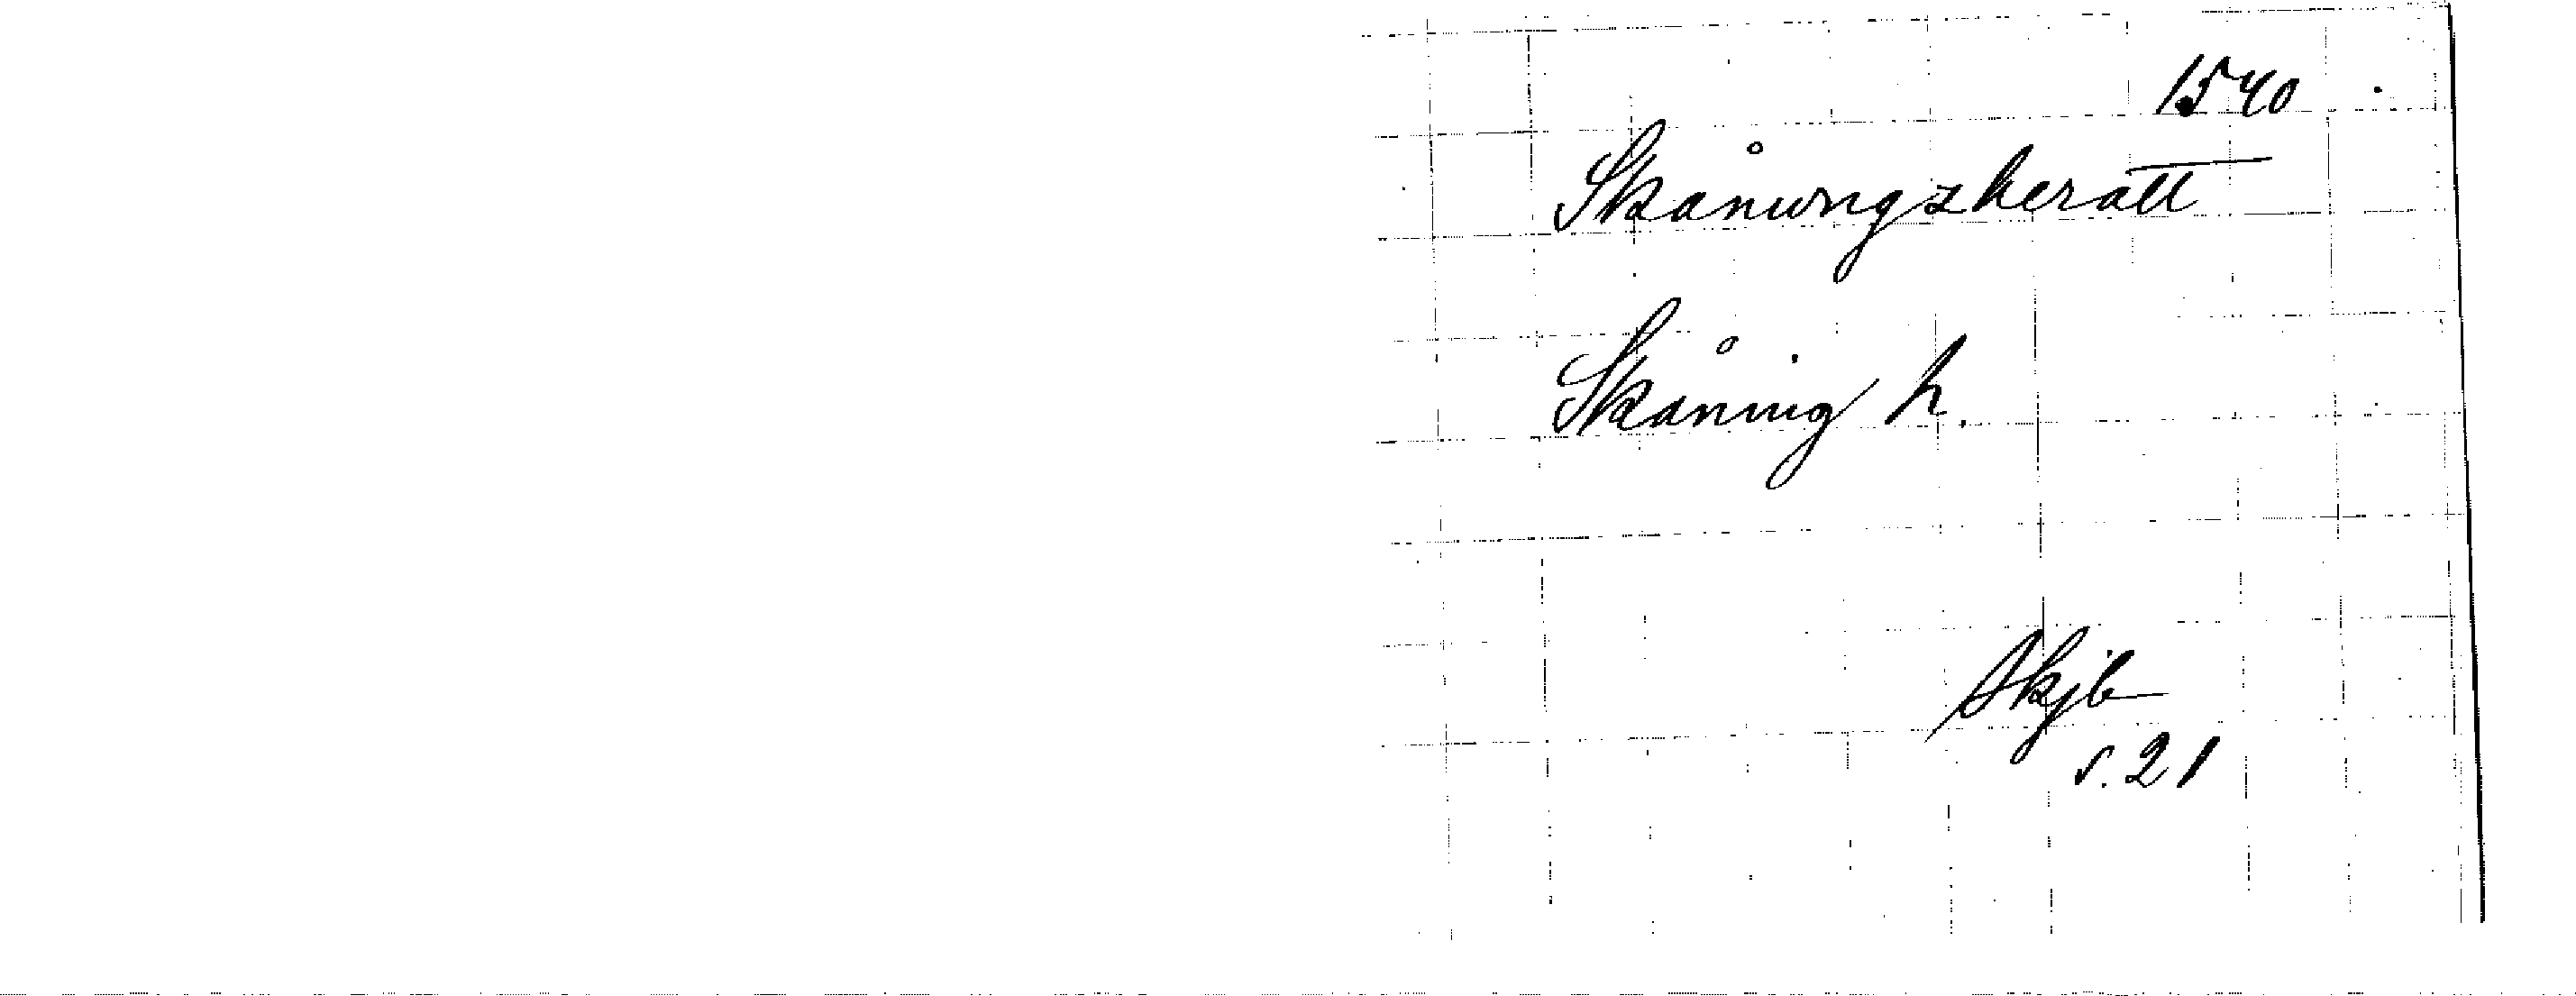 1540
Skånungszheratt
Skåning h.
Skjb
s. 21